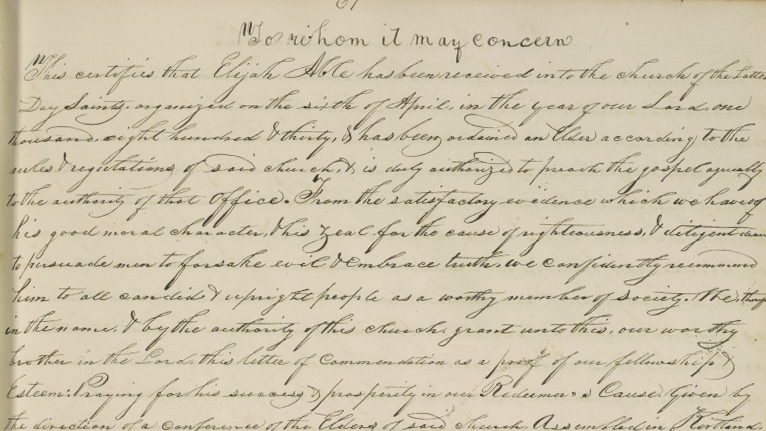 61
"To whom it may concern
"This certifies that Elijah Able has been received into the church of the Latter
Day Saints, organized on the sixth of April, in the year of our Lord, one
thousand, eight hundred & thirty, & has been ordained an Elder according to the
rules & regulations of said church, & is duly authorized to preach the gospel agreeably
to the authority of that Office. From the satisfactory evidence which we have of
his good moral character, & his zeal for the cause of righteousness, & diligent
to persuade men to forsake evil & embrace truth, we confidently recommend
him to all candid & upright people as a worthy member of society. We,
in the name, & by the authority of this church, grant unto this, our worthy
brother in the Lord, this letter of commendation as a proof of our fellowship &
Esteem: Praying for his success & prosperity in our Redeemer's Cause Given by
the direction of a conference of the Elders of said church, Assembled in Kirtland,